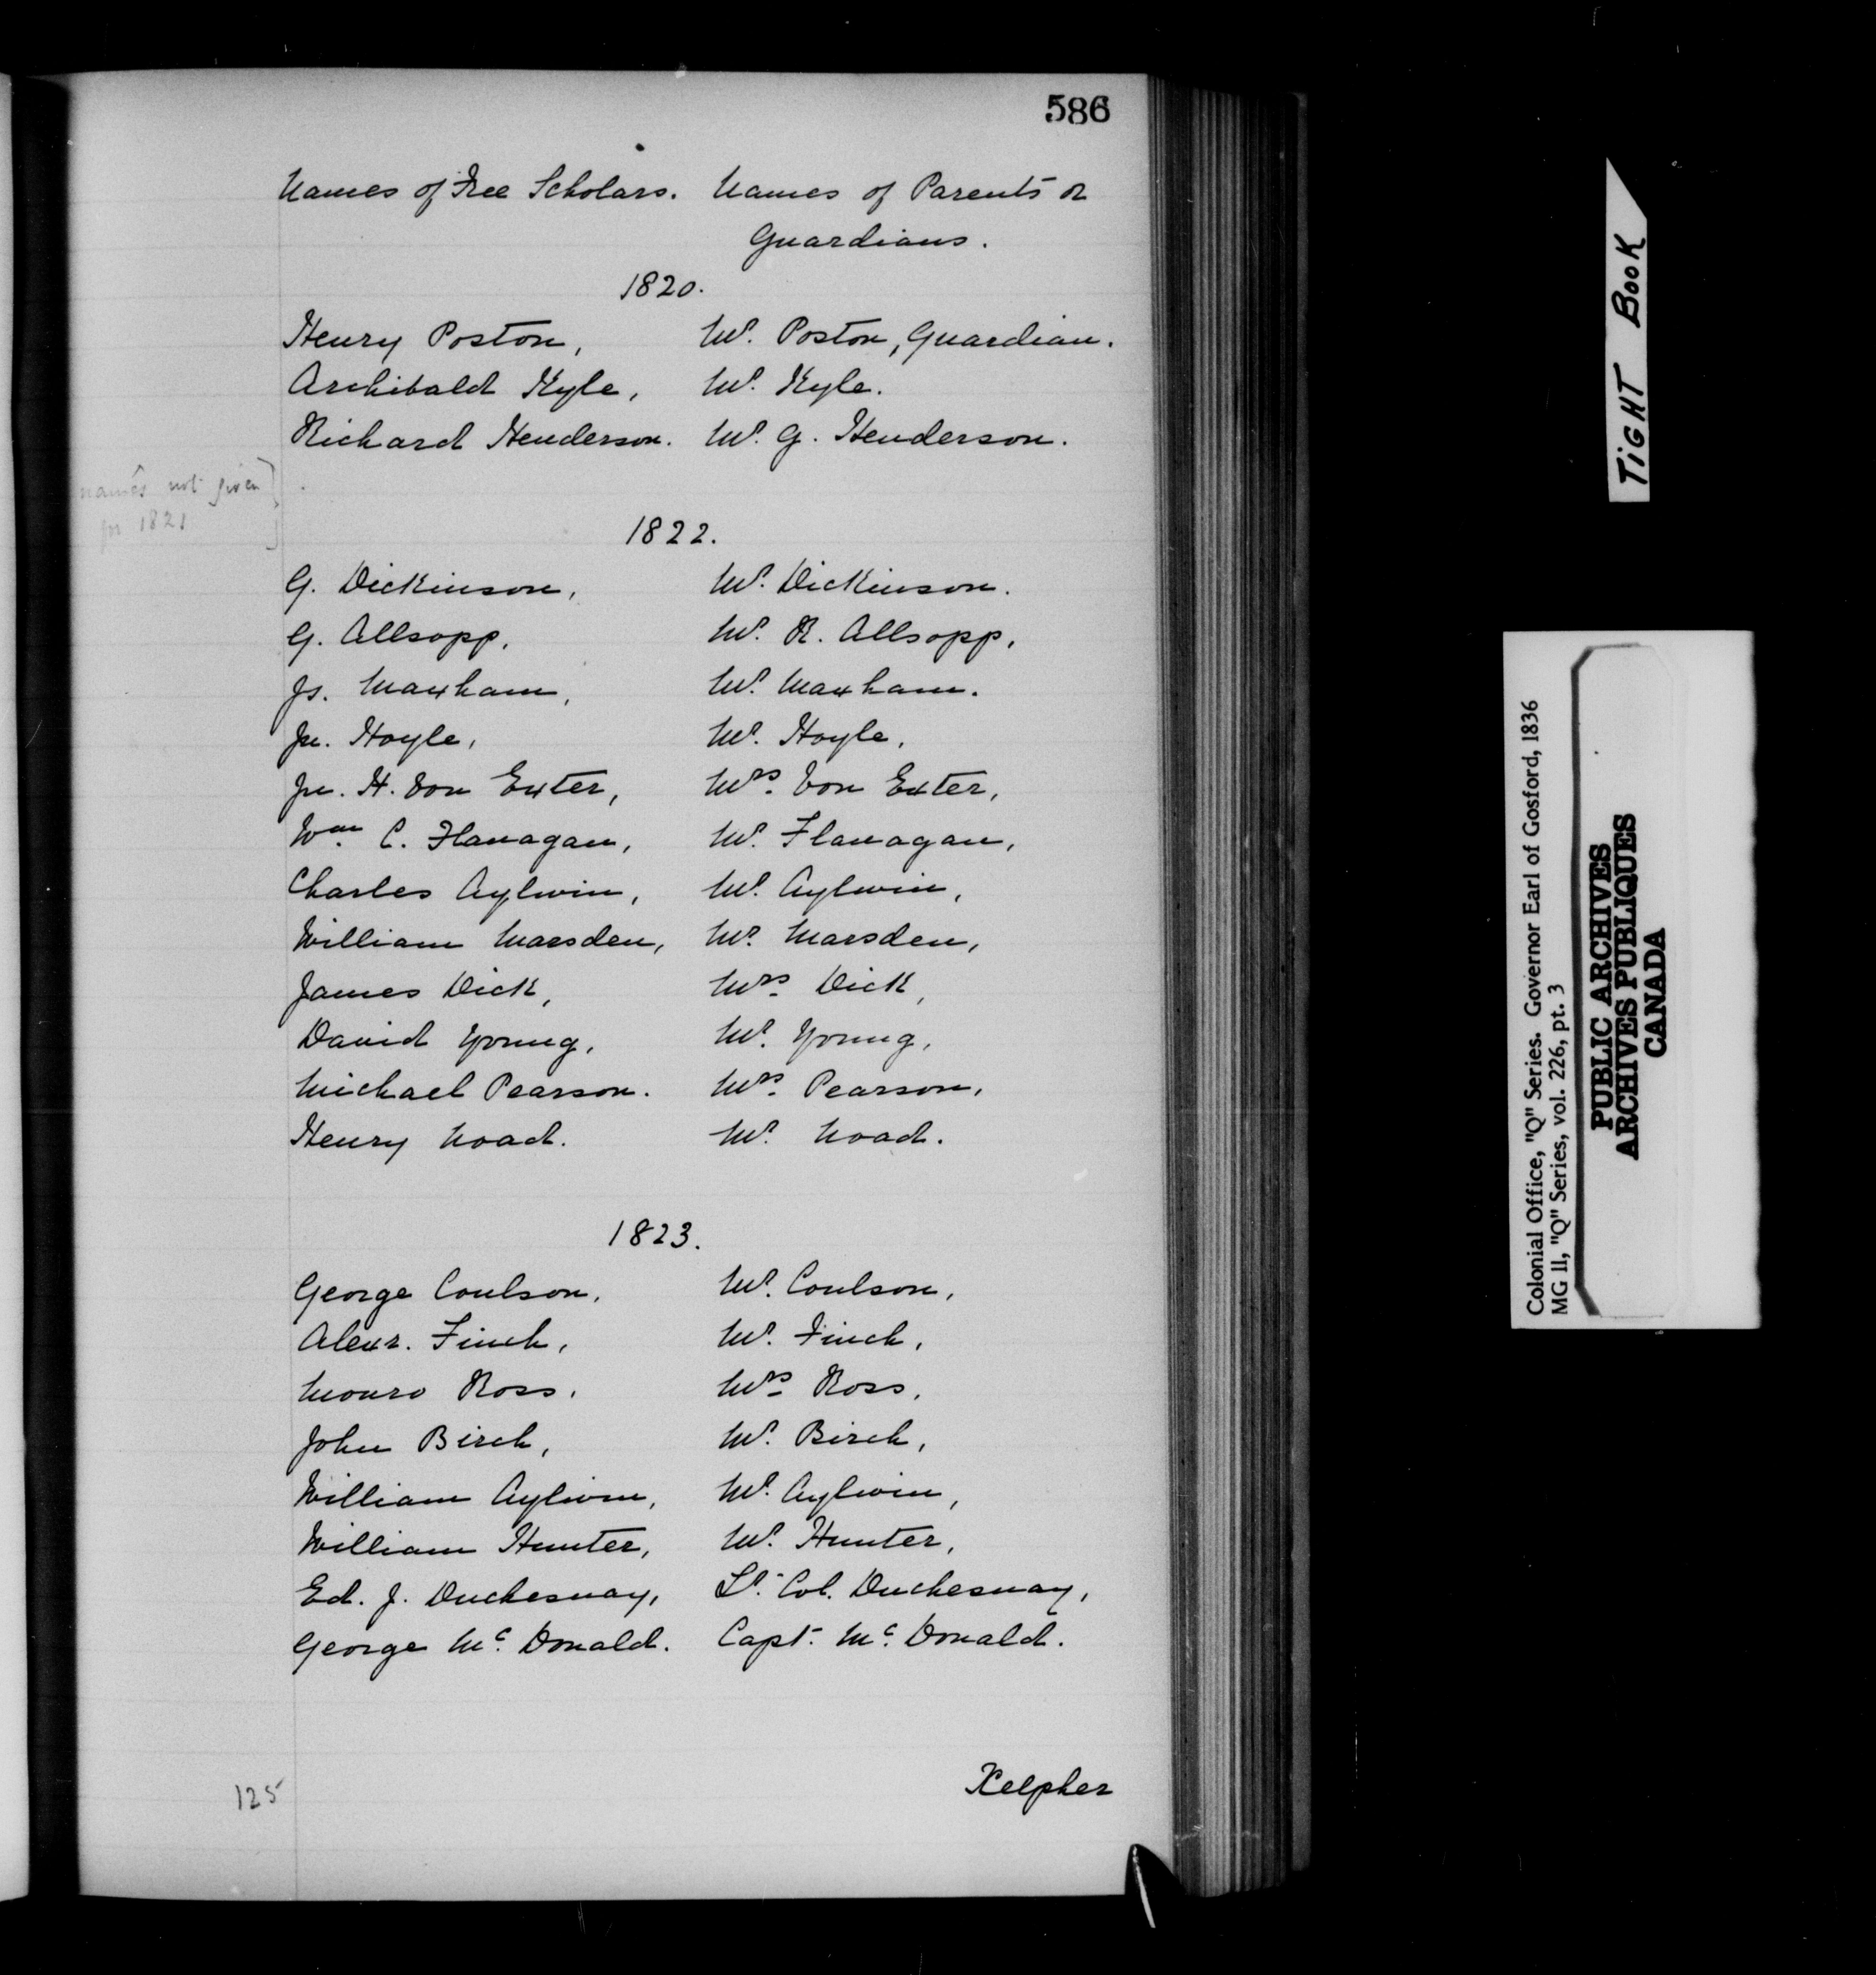 586
Names of Free Scholars. Names of Parents or
Guardians.
1820.
Henry Poston, Mr. Poston, Guardian.
Archibald Kyle, Mr. Kyle.
Richard Henderson. Mr. G. Henderson.
names not given
for 1821
1822.
G. Dickinson, Mr. Dickinson.
G. Allsopp, Mr. R. Allsopp,
Js. Maxham, Mr. Maxham.
Jn. Hoyle, Mr. Hoyle,
Jn. H. Von Exter, Mrs. Von Exter,
Wm. C. Flanagan, Mr. Flanagan,
Charles Aylwin, Mr. Aylwin,
William Marsden, Mr. Marsden,
James Dick, Mrs. Dick,
David Young, Mr. Young,
Michael Pearson. Mrs. Pearson,
Henry Noad. Mr. Noad.
1823.
George Coulson, Mr. Coulson,
Alexr. Finch, Mr. Finch,
Monro Ross, Mrs. Ross,
John Birch, Mr. Birch,
William Aylwin, Mr. Aylwin,
William Hunter, Mr. Hunter,
Ed. J. Duchesnay, Lt. Col. Duchesnay,
George Mc. Donald. Capt. Mc. Donald.
125
Kelpher
TIGHT BOOK
Colonial Office, "Q" Series. Governor Earl of Gosford, 1836
MG 11, "Q" Series, vol. 226, pt. 3
PUBLIC ARCHIVES
ARCHIVES PUBLIQUES
CANADA